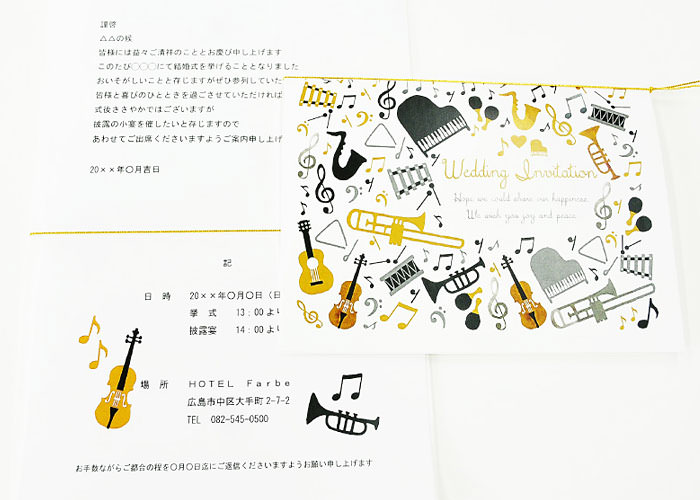 謹啓
△△の候
皆様には益々ご清祥のこととお慶び申し上げます
このたび◯◯◯にて結婚式を挙げることとなりました
おいそがしいことと存じますがぜひ参列していた
皆様と喜びのひとときを過ごさせていただければ
式後ささやかではございますが
披露の小宴を催したいと存じますので
あわせてご出席くださいますようご案内申し上げ
20××年〇月吉日
Wedding Invitation
Hope we could share our happiness.
We wish you joy and peace.
記
日 時 20××年〇月〇日（日
挙 式 13：00より
披露宴 14：00より
場 所 HOTEL Farbe
広島市中区大手町2-7-2
TEL 082-545-0500
お手数ながらご都合の程を〇月〇日迄にご返信くださいますようお願い申し上げます